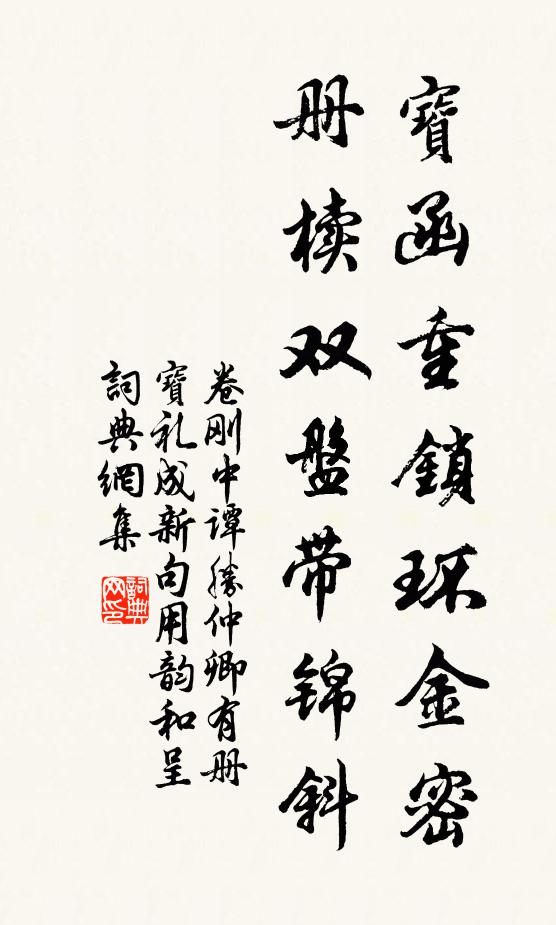 寶函重鎖环金密
册椟双盤带锦斜
卷刚中谭勝仲卿有册
寶礼成新句用韵和呈
詞典網集
詞典网印